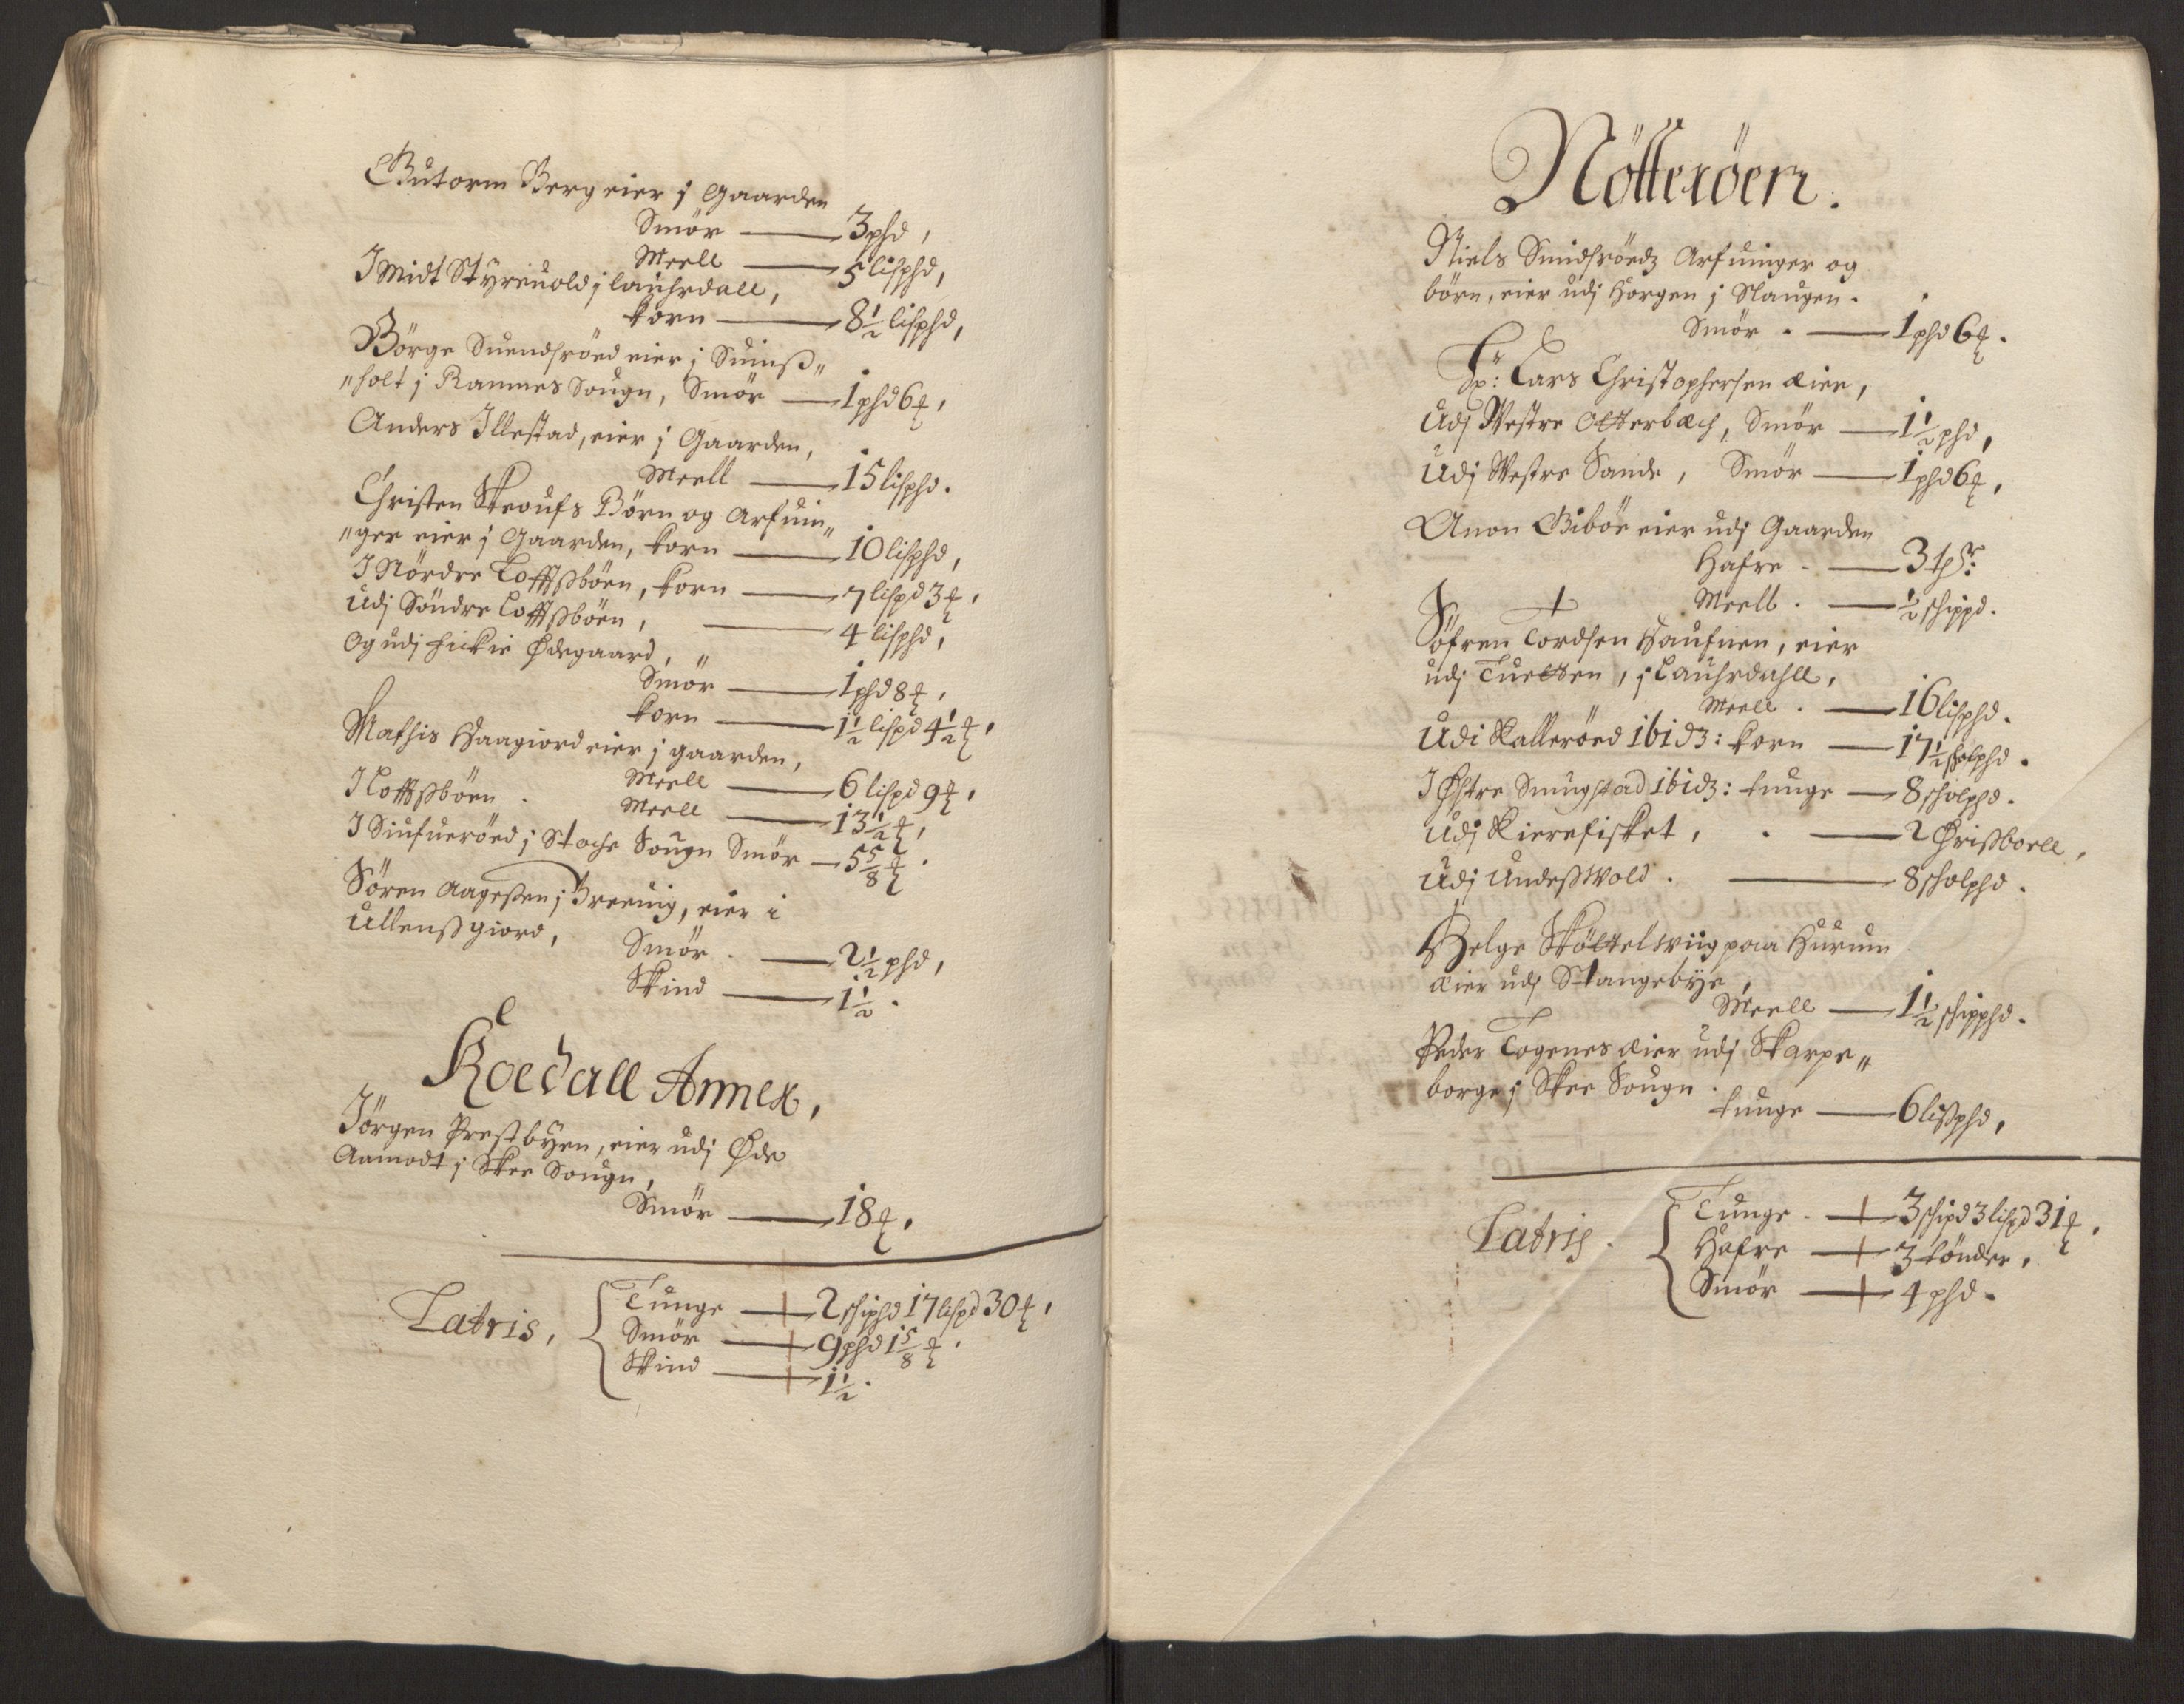 Gutorm Berg eier j Gaarden
Smör — 3 phd,
Meell — 5 lisphd,
J Midt Styreuold j lauhrdall,
korn — 8½ lisphd,
Börge Suendsröed eier j Suinß„
„holt j Ramnes Sougn, Smör — 1 phd 6 ℔,
Anders Illestad, eier j Gaarden,
Meell — 15 lisphd.
Christen Skoufs Börn og Arfuin„
„ger eier j Gaarden, korn — 10 lisphd,
J Nördre Loffßböen, korn — 7 lispd 3 ℔,
Udj Söndre Loffßböen, — 4 lisphd,
Og udj hickie Ødegaard, „
Smör — 1 phd 8 ℔,
korn — 1½ lispd 4½ ℔,
Mathis Haagiord eier j gaarden,
Meell — 6 lispd 9 ℔,
J Loffßböen . Meell — 13½ ℔,
J Siufueröed j Stoche Sougn Smör — 5 5/8 ℔.
Sören Aageßen j Breeuig, eier i
Ullenßgiord,
Smör . — 2½ phd,
Skind — 1½ .
Roedall Annex,
Jörgen Prestbÿen, eier udj Øde
Aamodt j Skee Sougn,
Smör — 18 ℔,
Latris, Tunge — 2 schiphd 17 lispd 30 ℔,
Smör — 9 phd 1 5/8 ℔.
Skind — 1½ .
Nötteröen.
Niels Smidsröedz Arfuinger og
börn, eier udj Horgen j Slaugen.
Smör . — 1 phd 6 ℔.
Hr: Lars Christophersen Eier,
Udj Westre Otterbech, Smör — 1½ phd,
Udj Westre Sande, Smör — 1 phd 6 ℔,
Anon Biböe eier udj Gaarden
Hafre . — 3 tr:
Meell . — ½ schippd.
Söfren Tordsen Haufnen, eier
udj Tuetten, j Lauhrdahll,
Meell . — 16 lisphd.
Udi Kalleröed ibidz: korn — 17½ scholphd.
J Østre Smugstad ibidz: tunge — 8 scholphd.
Udj Kierefisket, . — 2 Örißboell,
Udj Undeßwold . — 8 scholphd.
Helge Sköttelwiig paa Hurum
Eier udj Stangebÿe,
Meell — 1½ schipphd.
Peder Togenes Eier udj Skarpe„
borge j Skee Sougn .
tunge — 6 lißphd,
Latris . Tunge . — 3 schipd 3 lispd 31 ℔,
Hafre — 3 tönder,
Smör — 4 phd.